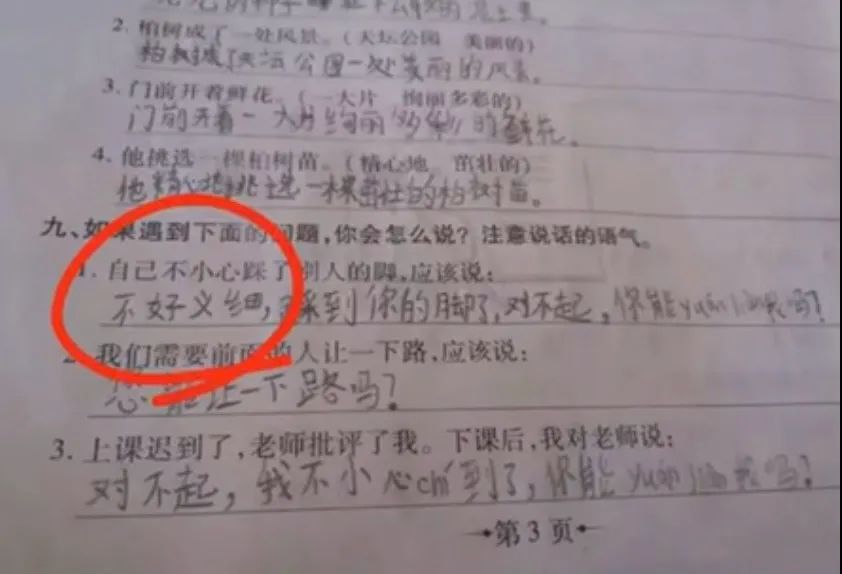 2. 柏树成了一处风景。(天坛公园 美丽的)
柏树城了天坛公园一处美丽的风景。
3. 门前开着鲜花。(一大片 绚丽多彩的)
门前开着一大片绚丽多彩的鲜花。
4. 他挑选一棵柏树苗。(精心地 茁壮的)
他精心地挑选一棵茁壮的柏树苗。
九、如果遇到下面的问题,你会怎么说?注意说话的语气。
1. 自己不小心踩了别人的脚,应该说:
不好义细,踩到你的脚了,对不起,你能yuán liàng我吗?
2. 我们需要前面的人让一下路,应该说:
您能让一下路吗?
3. 上课迟到了,老师批评了我。下课后,我对老师说:
对不起,我不小心chí到了,你能yuán liàng我吗?
第3页